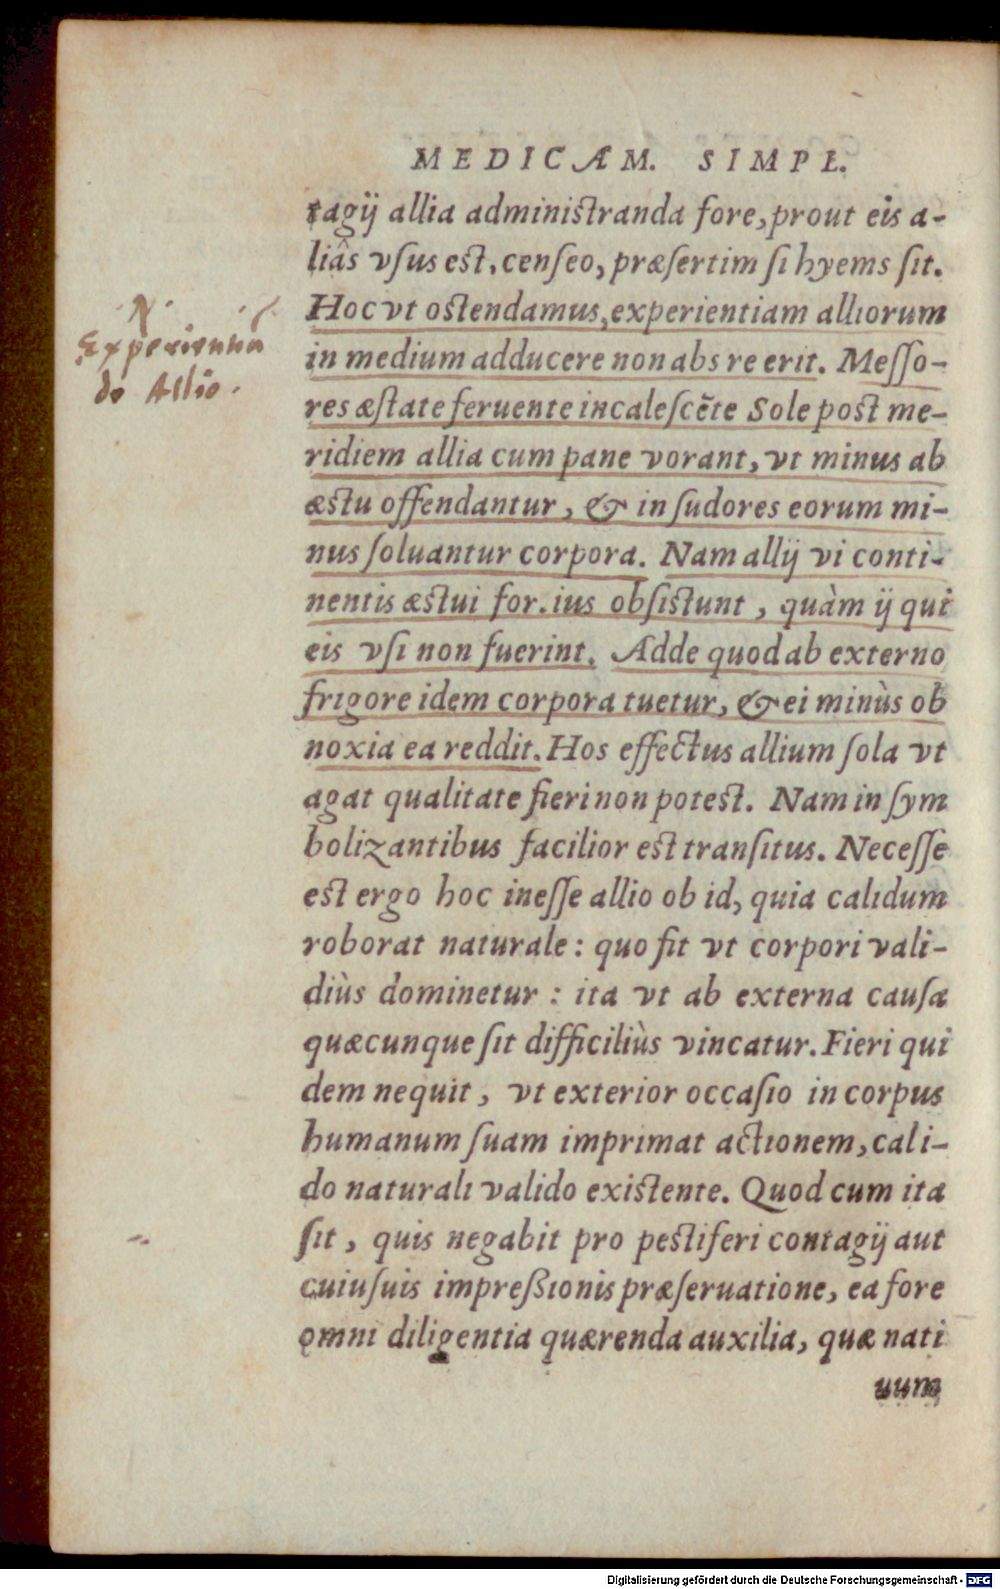 MEDICAM. SIMPL.
tagij allia administranda fore, prout eis a-
liâs vſus est, cenſeo, præſertim ſi hyems ſit.
Hoc vt ostendamus, experientiam alliorum
in medium adducere non abs re erit. Meſſo-
res æſtate feruente incaleſcẽte Sole post me-
ridiem allia cum pane vorant, vt minus ab
æstu offendantur, & in ſudores eorum mi-
nus ſoluantur corpora. Nam allij vi conti-
nentis æstui for.ius obſistunt, quàm ij qui
eis vſi non fuerint. Adde quod ab externo
frigore idem corpora tuetur, & ei minùs ob
noxia ea reddit. Hos effectus allium ſola vt
agat qualitate fieri non potest. Nam in ſym
bolizantibus facilior est tranſitus. Neceſſe
est ergo hoc ineſſe allio ob id, quia calidum
roborat naturale: quo fit vt corpori vali-
diùs dominetur: ita vt ab externa cauſa
quæcunque ſit difficiliùs vincatur. Fieri qui
dem nequit, vt exterior occaſio in corpus
humanum ſuam imprimat actionem, cali-
do naturali valido existente. Quod cum ita
ſit, quis negabit pro pestiferi contagij aut
cuiuſuis impreßionis præſeruatione, ea fore
omni diligentia quærenda auxilia, quæ nati
uum
N.
Experientia
de Allio.
Digitalisierung gefördert durch die Deutsche Forschungsgemeinschaft - DFG